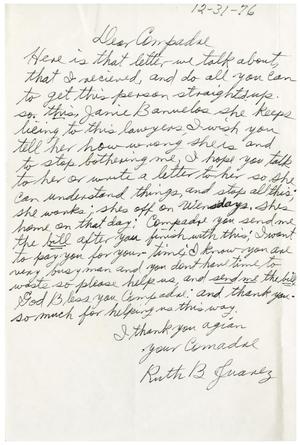 12-31-76
Dear Compadre
Here is that letter we talk about,
that I recieved, and do all you can
to get this person straight up.
so, this, Janie Banuelos she keeps
lieing to this lawyers I wish you
tell her how wrong she is and
to stop bothering me, I hope you talk
to her or write a letter to her so she
can understand things, and stop all this.
she works! shes off on Wensdays. shes
home on that day! Compadre you send me
the bill after you finish with this! I want
to pay you for your time! I know you are
very busy man and you dont have time to
waste so please help us, and send me the bill.
God B,less you Compadre! and thank you
so much for helping us this way.
I thank you agian
your Comadre
Ruth B Juarez